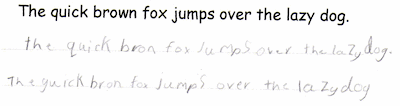 The quick brown fox jumps over the lazy dog.
the quick bron fox Jumps over the lazy dog.
The quick bron fox jumps over the lazy dog